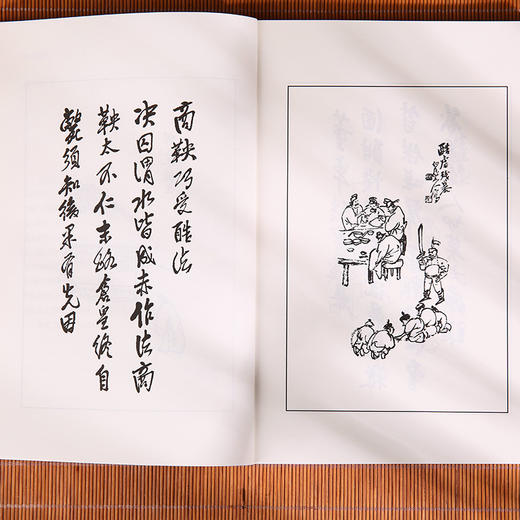 商鞅巧受酷法
决囚渭水皆成赤作法商
鞅太不仁末路倉皇終自
斃須知後果有先因
酷虐